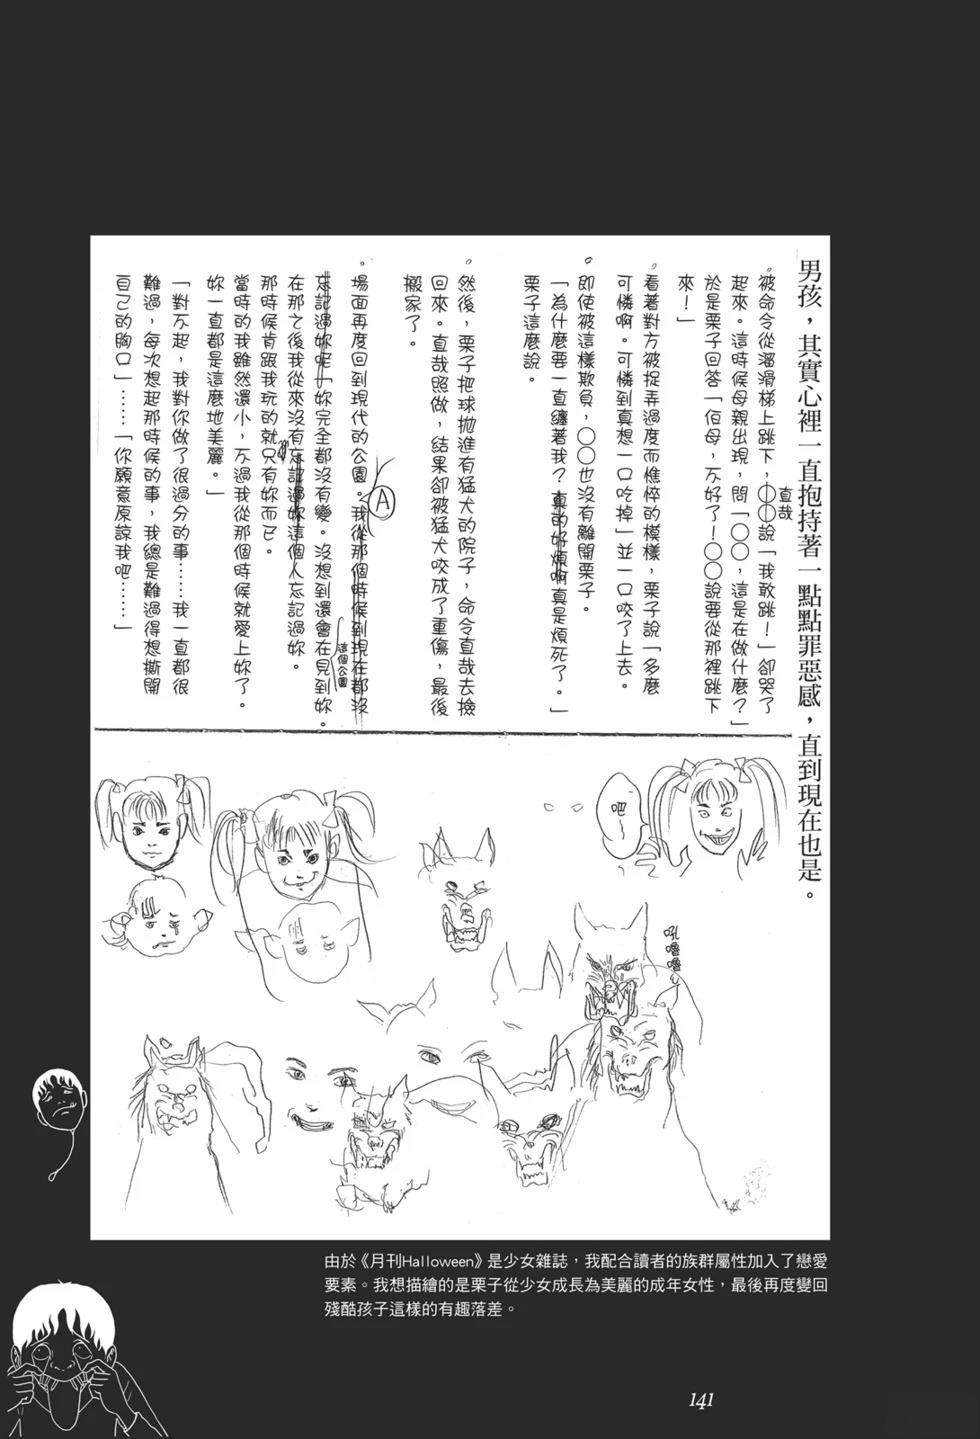 男孩，其實心裡一直抱持著一點點罪惡感，直到現在也是。
。被命令從溜滑梯上跳下，〇〇說「我敢跳！」卻哭了
直哉
起來。這時候母親出現，問「〇〇，這是在做什麼？」
於是栗子回答「伯母，不好了！〇〇說要從那裡跳下
來！」
。看著對方被捉弄過度而憔悴的模樣，栗子說「多麼
可憐啊。可憐到真想一口吃掉」並一口咬了上去。
。即使被這樣欺負，〇〇也沒有離開栗子。
「為什麼要一直纏著我？真的好煩啊真是煩死了。」
栗子這麼說。
。然後，栗子把球拋進有猛犬的院子，命令直哉去撿
回來。直哉照做，結果卻被猛犬咬成了重傷，最後
搬家了。
。場面再度回到現代的公園。我從那個時候到現在都沒
Ⓐ
忘記過妳呢「妳完全都沒有變。沒想到還會在見到妳。
這個公園
在那之後我從來沒有忘記過妳這個人忘記過妳。
那時候肯跟我玩的就只有妳而已。
當時的我雖然還小，不過我從那個時候就愛上妳了。
妳一直都是這麼地美麗。」
「對不起，我對你做了很過分的事……我一直都很
難過，每次想起那時候的事，我總是難過得想撕開
自己的胸口」……「你願意原諒我吧……」
吧～
吼嚕嚕
由於《月刊Halloween》是少女雜誌，我配合讀者的族群屬性加入了戀愛
要素。我想描繪的是栗子從少女成長為美麗的成年女性，最後再度變回
殘酷孩子這樣的有趣落差。
141